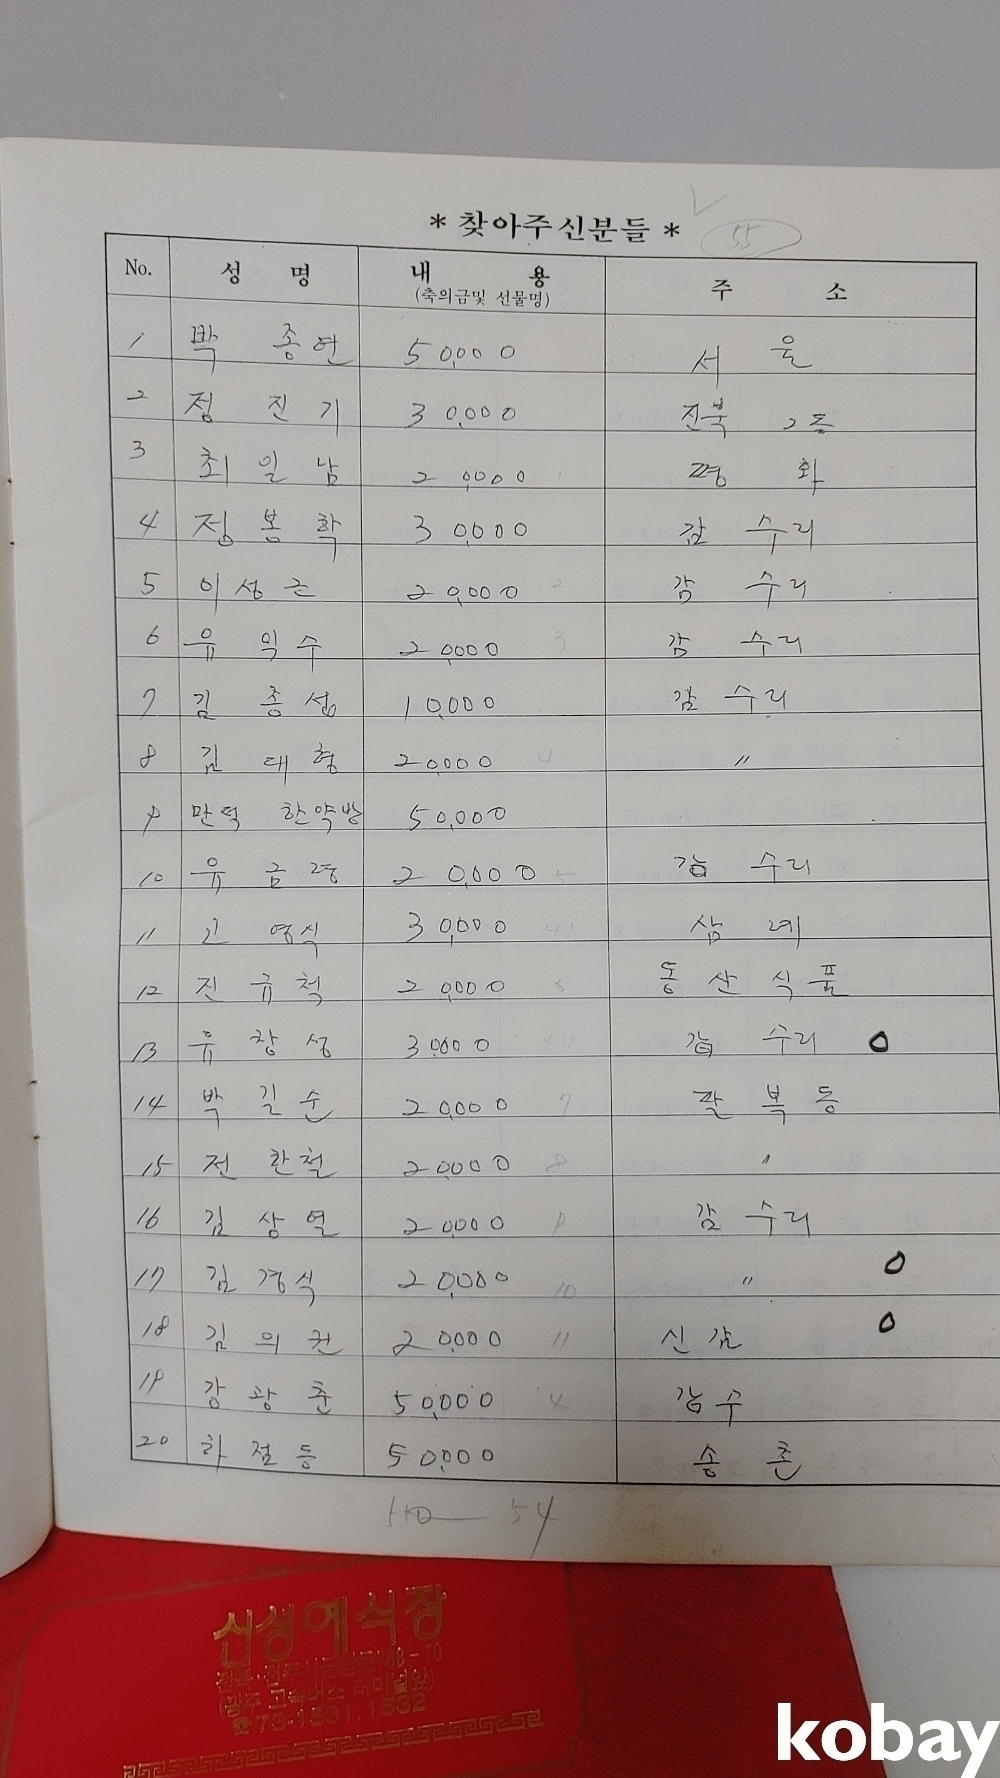 * 찾아주신분들 *
55
No. 성 명 내 용 주 소
(축의금및 선물명)
1 박 종연 50,000 서 울
2 정 진 기 30,000 진북 2동
3 최 일 남 20,000 평 화
4 정 봉 학 30,000 감 수리
5 이 성 근 20,000 2 감 수리
6 유 익 수 20,000 3 감 수리
7 김 종 섭 10,000 감 수리
8 김 대 형 20,000 4 〃
9 만덕 한약방 50,000
10 유 금 20,000 5 감 수리
11 고 영식 30,000 삼 례
12 진 규 척 20,000 동 산 식 품
13 유 창 성 30,000 감 수리 O
14 박 길 순 20,000 7 팔 복 동
15 전 환 철 20,000 8 〃
16 김 상 열 20,000 9 감 수리
17 김 경 식 20,000 10 〃 O
18 김 의 권 20,000 11 신 감 O
19 강 광 춘 50,000 4 감 수
20 하 점 등 50,000 송 촌
54
신생예식장
(광주 고속버스 터미널앞)
☎ 73-1531, 1532
kobay